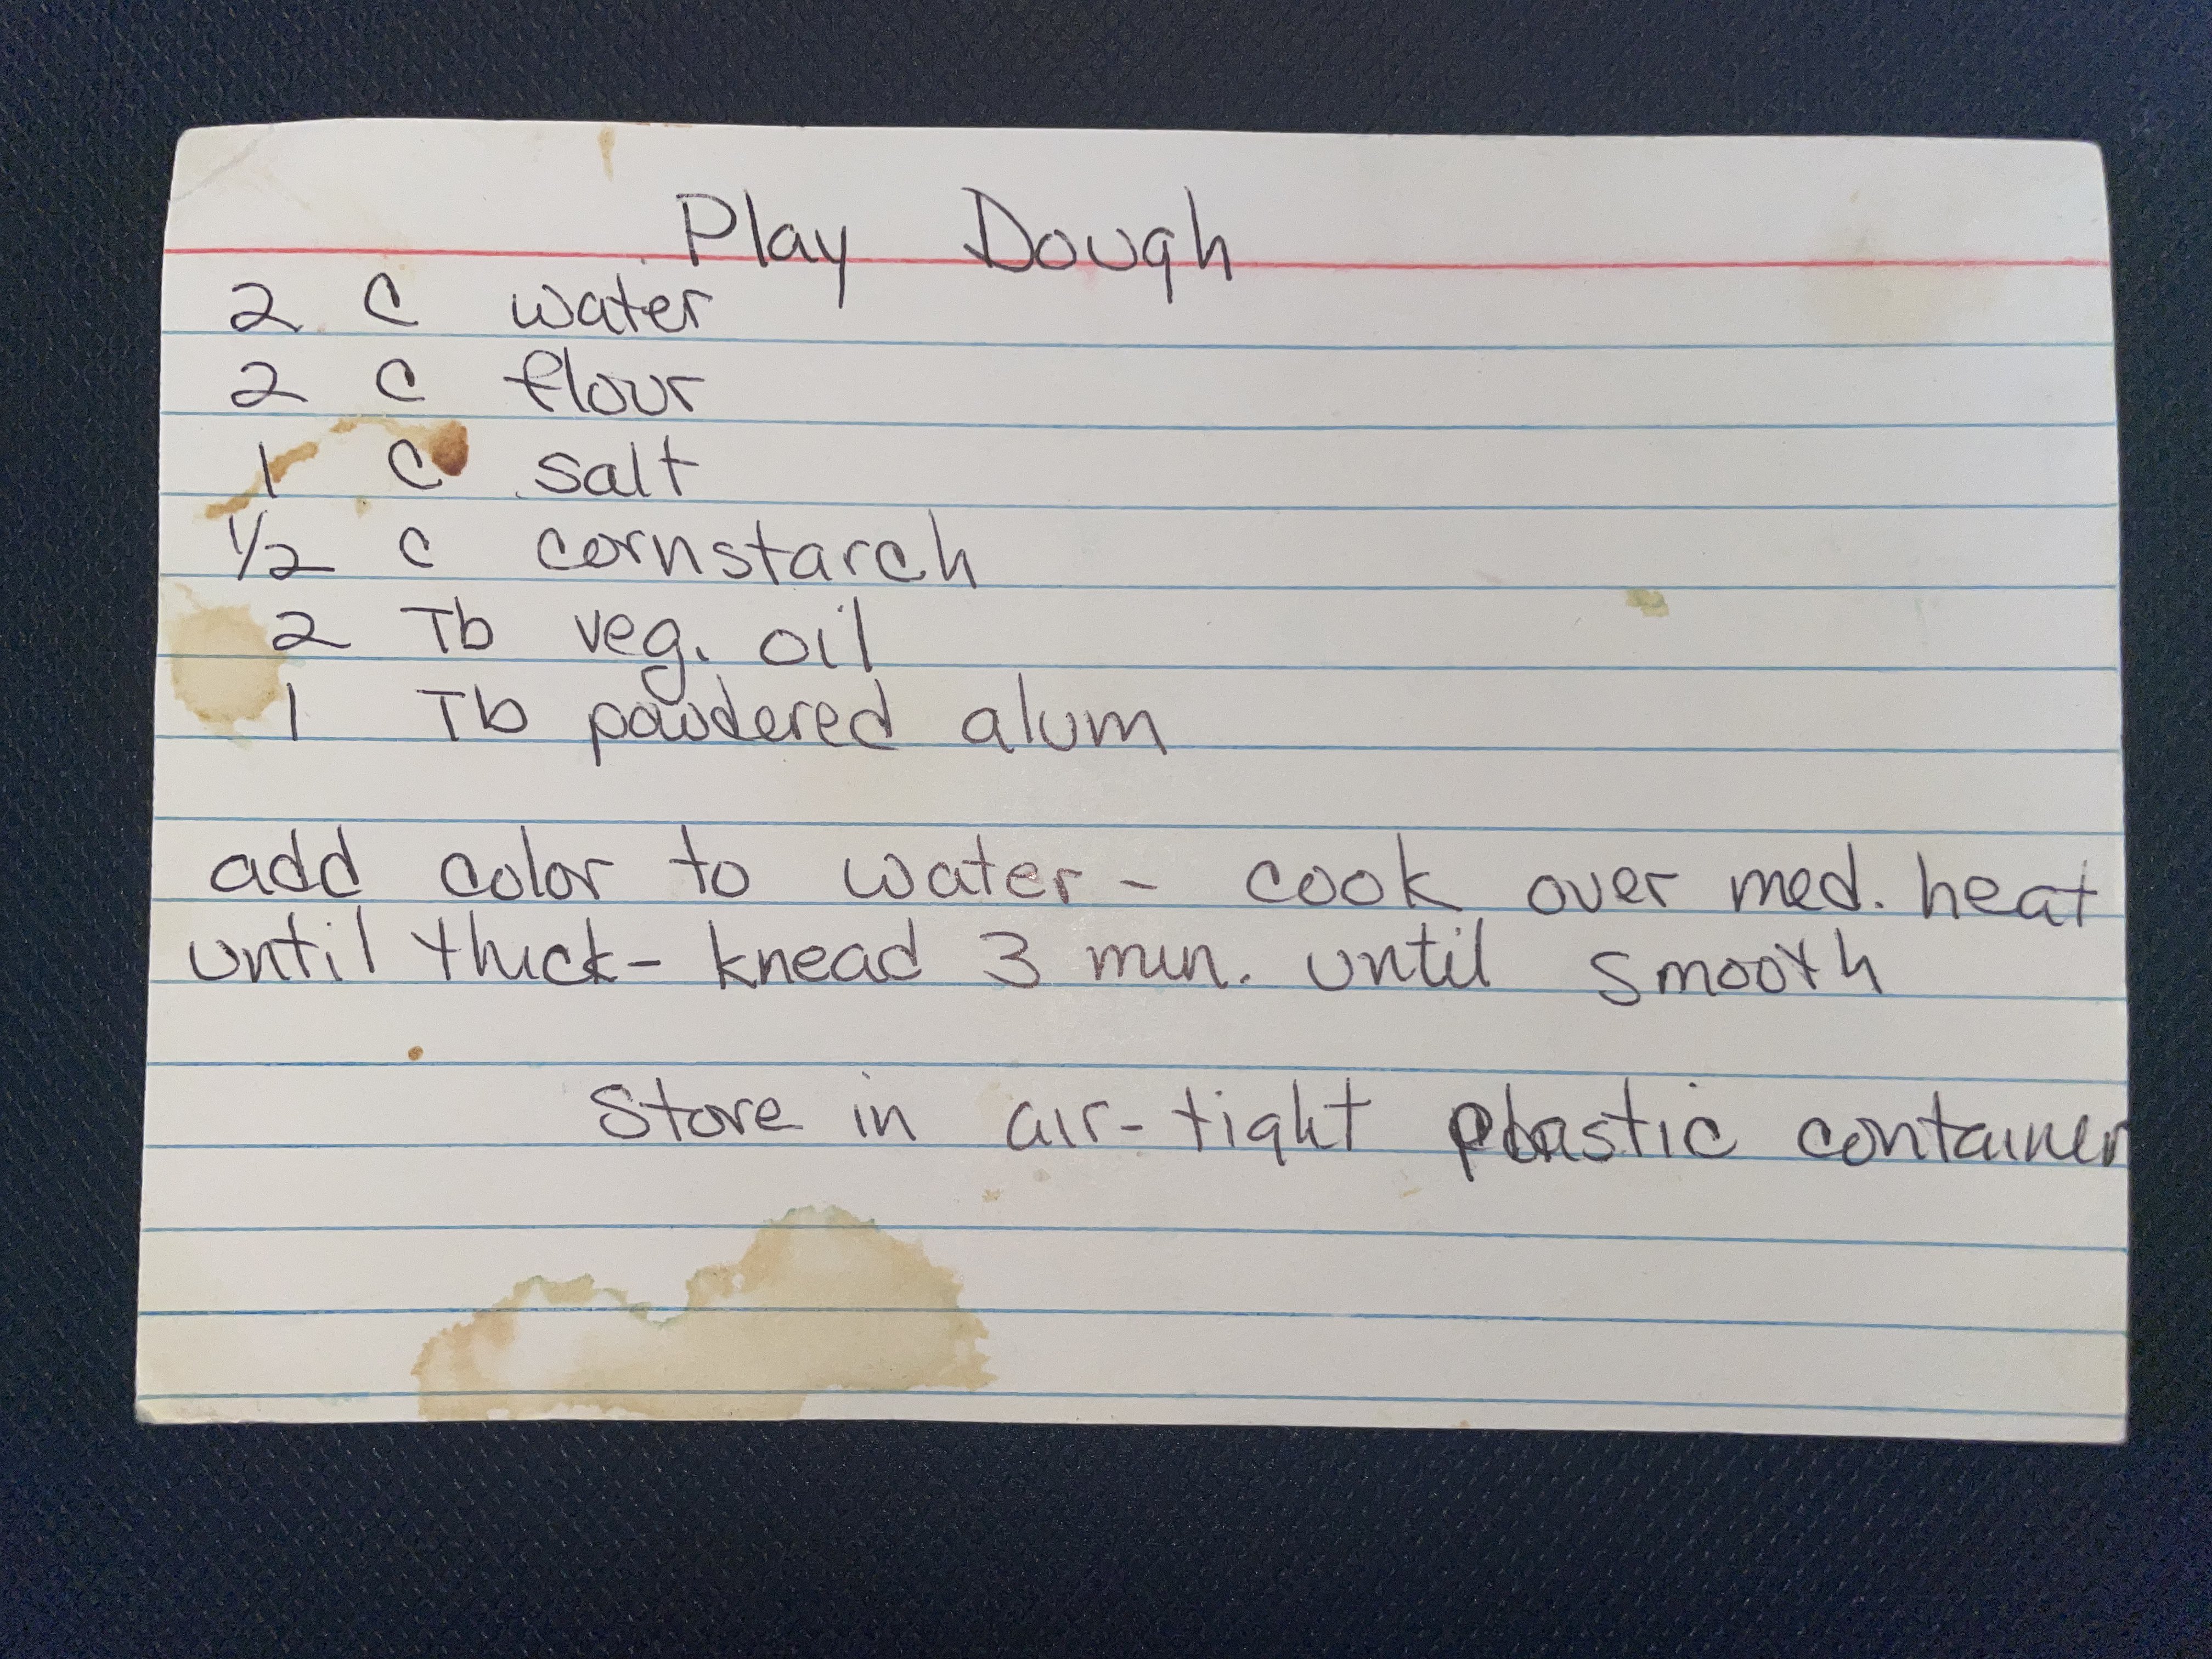 Play Dough
2 C water
2 C flour
1 C salt
1/2 C cornstarch
2 Tb veg. oil
1 Tb powdered alum
add color to water - cook over med. heat
until thick - knead 3 min. until smooth
Store in air-tight plastic container